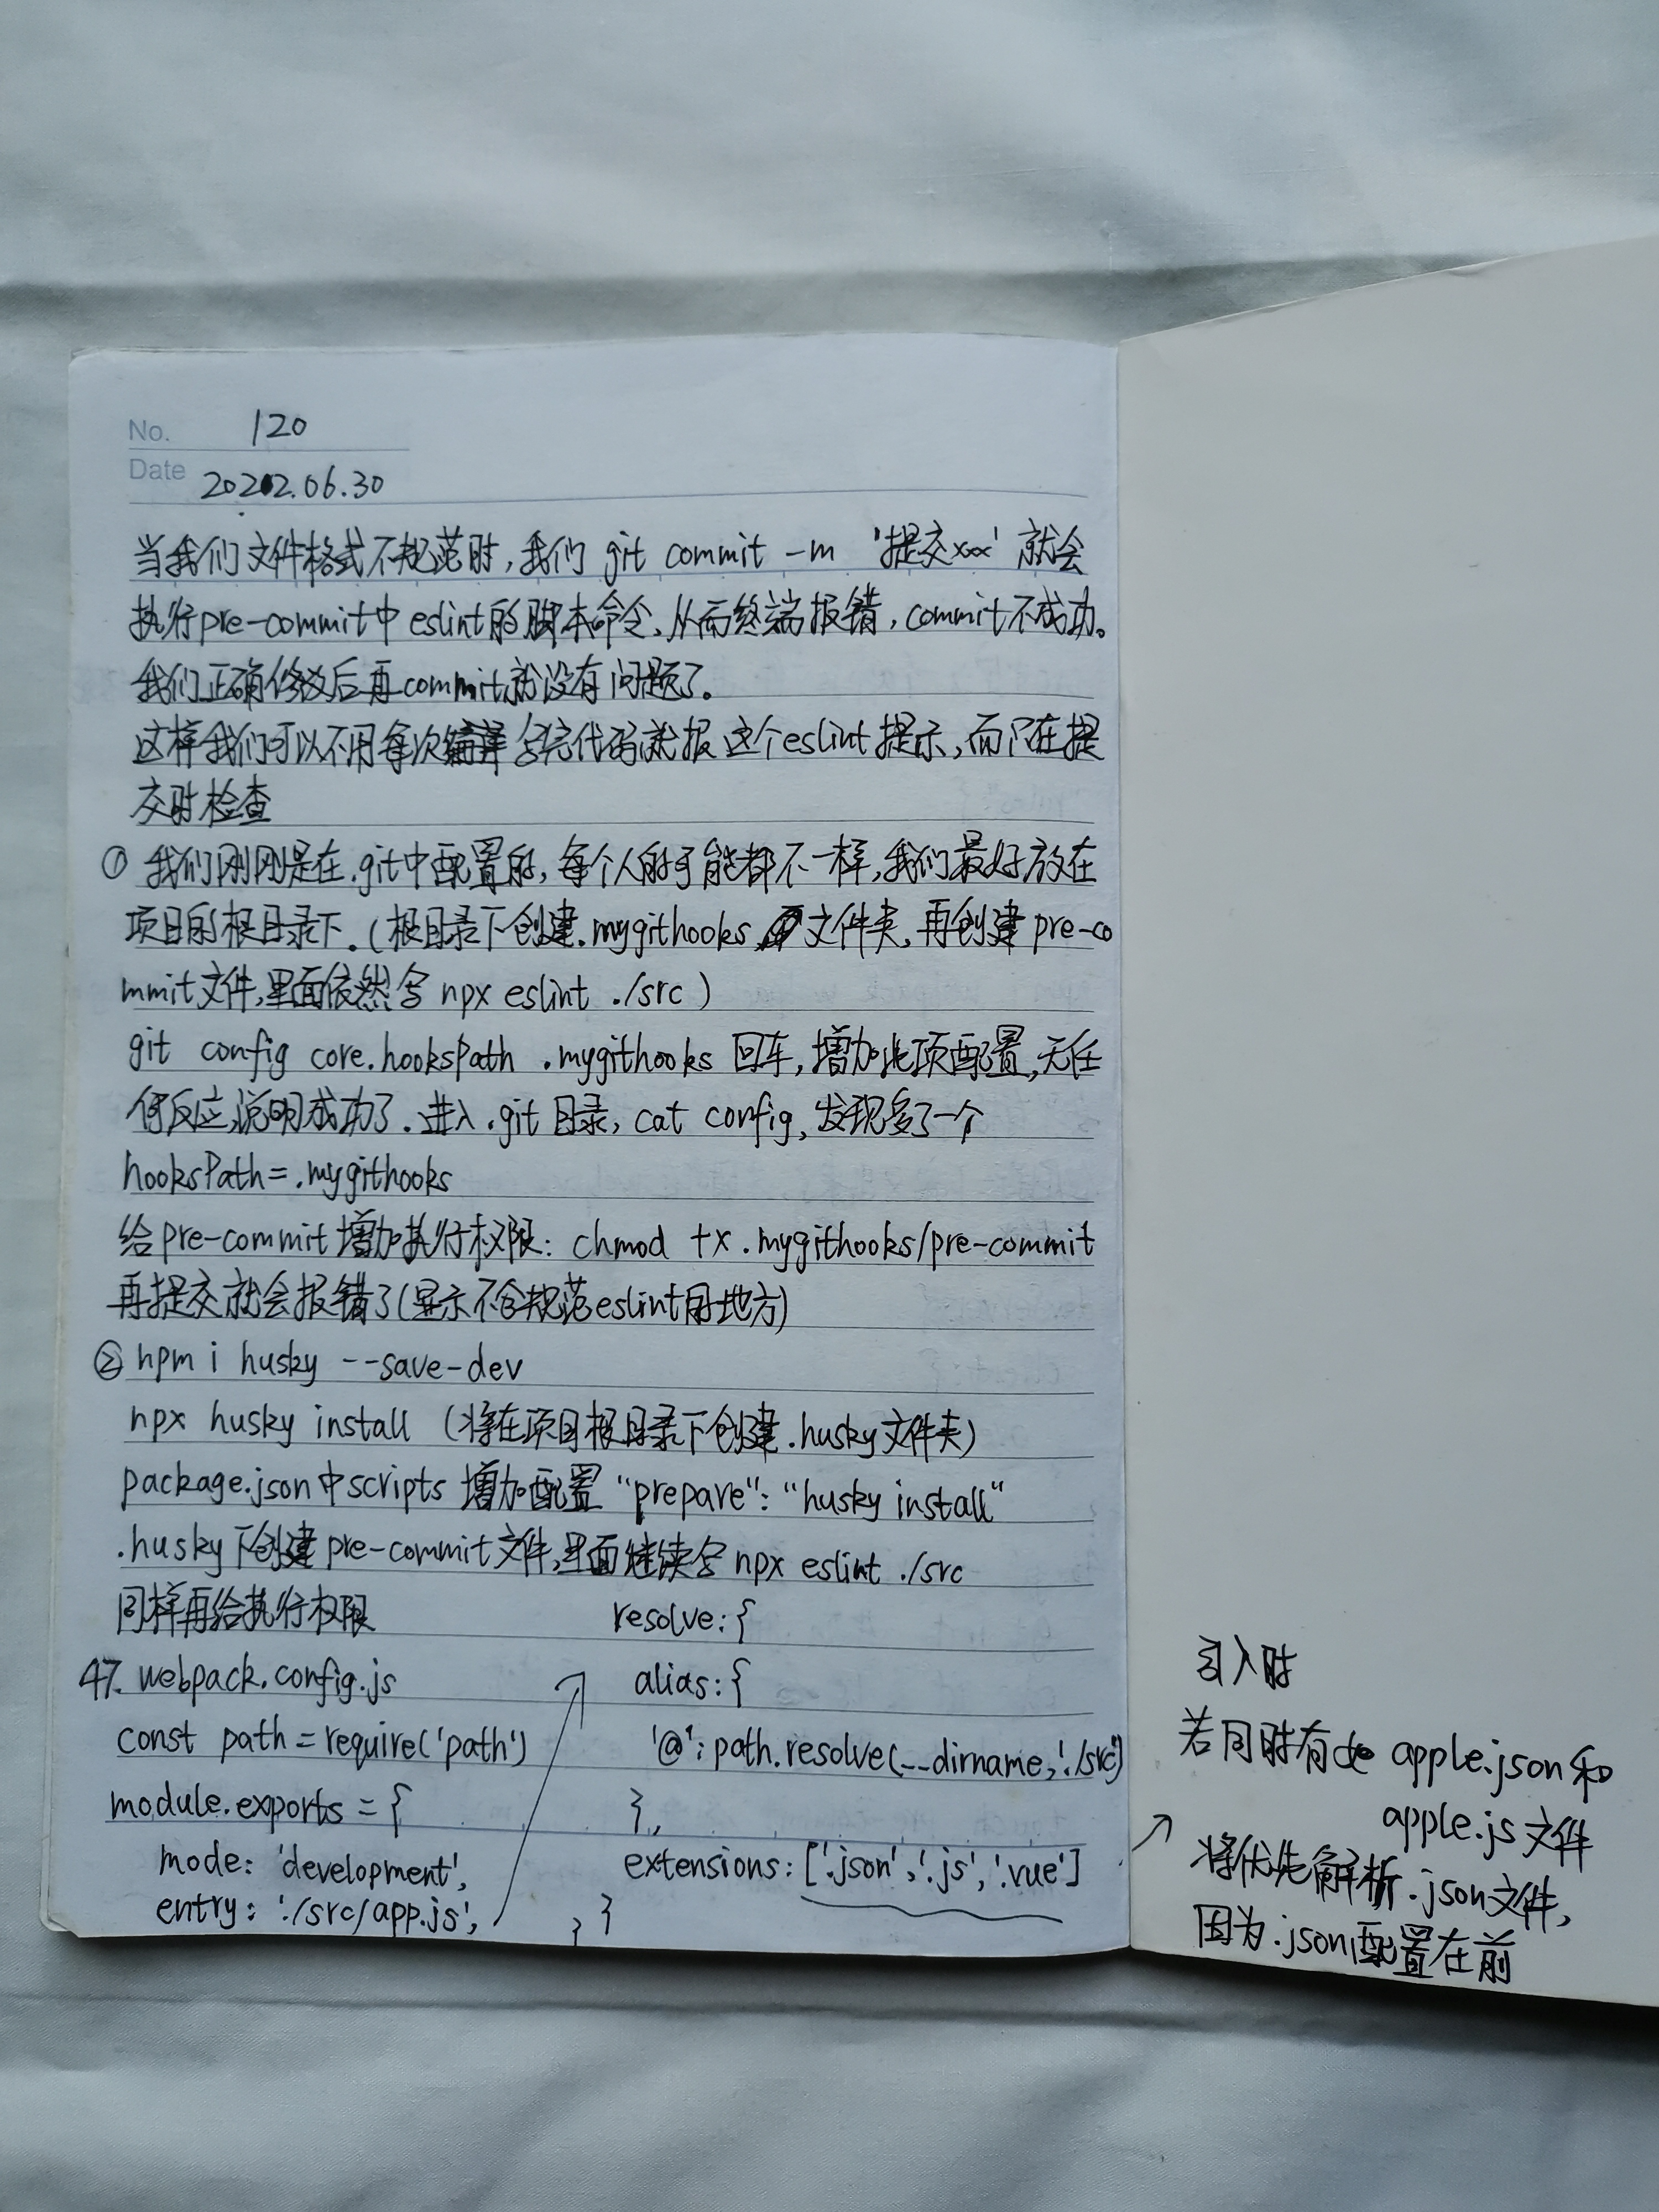 No. 120
Date 2022.06.30
当我们文件格式不规范时,我们 git commit -m '提交xxx' 就会
执行pre-commit中eslint的脚本命令、从而终端报错,commit不成功。
我们正确修改后再commit就没有问题了。
这样我们可以不用每次编译写完代码就报这个eslint提示,而只在提
交时检查
① 我们刚刚是在.git中配置的,每个人的可能都不一样,我们最好放在
项目的根目录下.(根目录下创建.mygithooks文件夹,再创建pre-co
mmit文件,里面依然写 npx eslint ./src )
git config core.hooksPath .mygithooks 回车,增加此项配置,无任
何反应,说明成功了.进入.git目录, cat config,发现多了一个
hooksPath=.mygithooks
给pre-commit增加执行权限: chmod +x .mygithooks/pre-commit
再提交就会报错了(显示不合规范eslint的地方)
② npm i husky --save-dev
npx husky install (将在项目根目录下创建.husky文件夹)
package.json中scripts 增加配置 "prepare": "husky install"
.husky下创建pre-commit文件,里面继续写 npx eslint ./src
同样再给执行权限
47. webpack.config.js
const path = require('path')
module.exports = {
mode: 'development',
entry: './src/app.js',
resolve: {
alias: {
'@': path.resolve(__dirname, './src')
},
extensions: ['.json', '.js', '.vue']
}
}
引入时
若同时有 apple.json和
apple.js文件
将优先解析.json文件,
因为.json配置在前